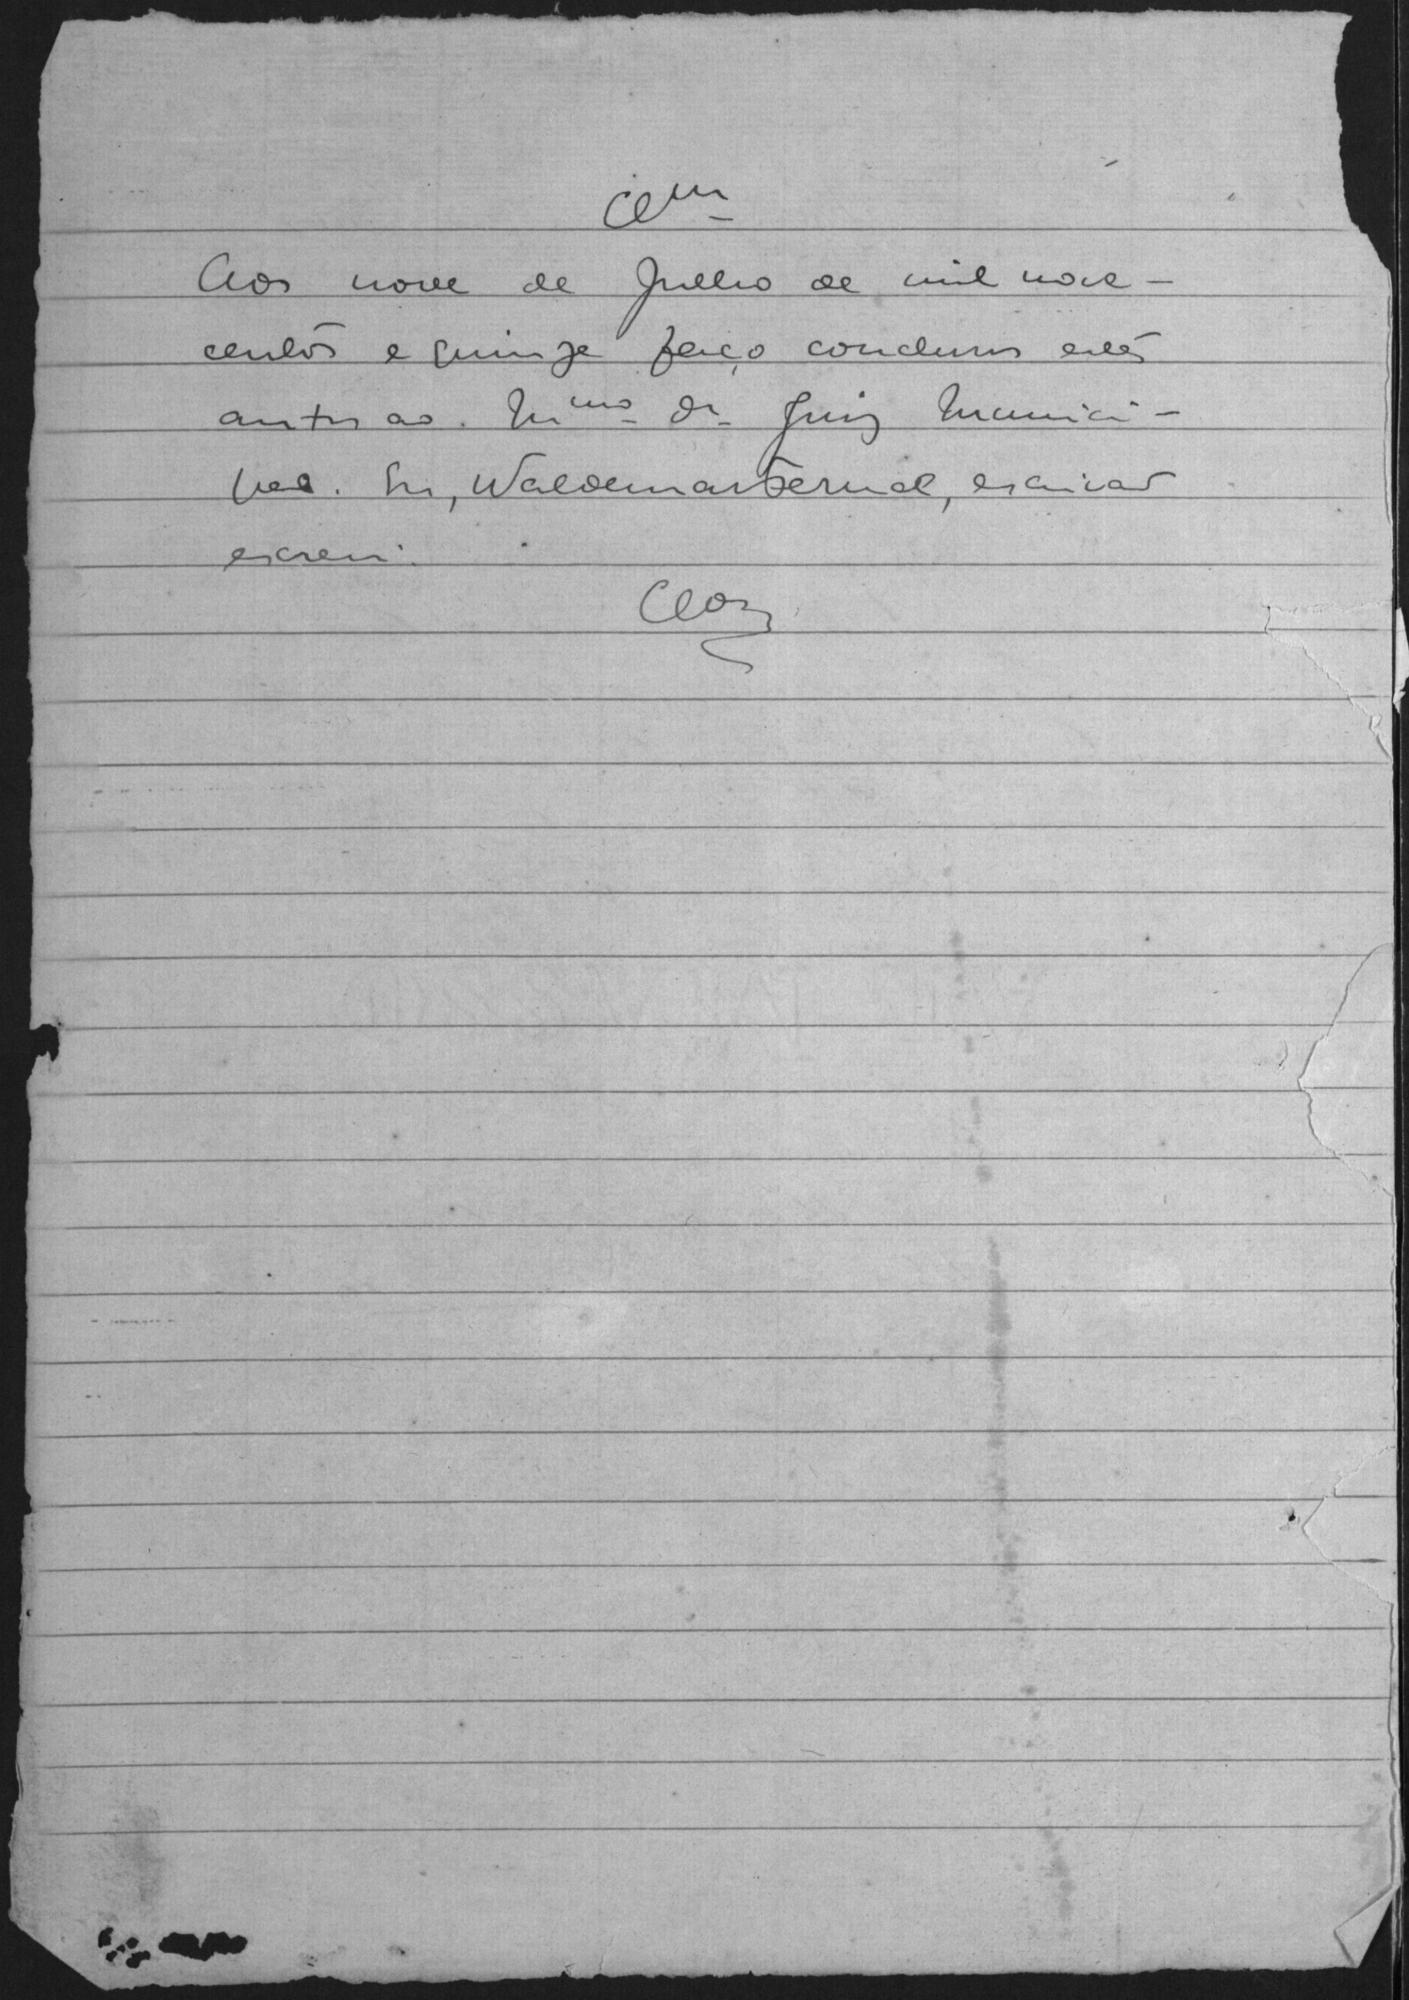 Clm
Aos nove de Julho de mil nove-
centos e quinze faço conclusos estes
autos ao. Mmo Dr. Juiz Munici-
pal. Eu, Waldemar Bernal, escrivão
escrevi.
Clos